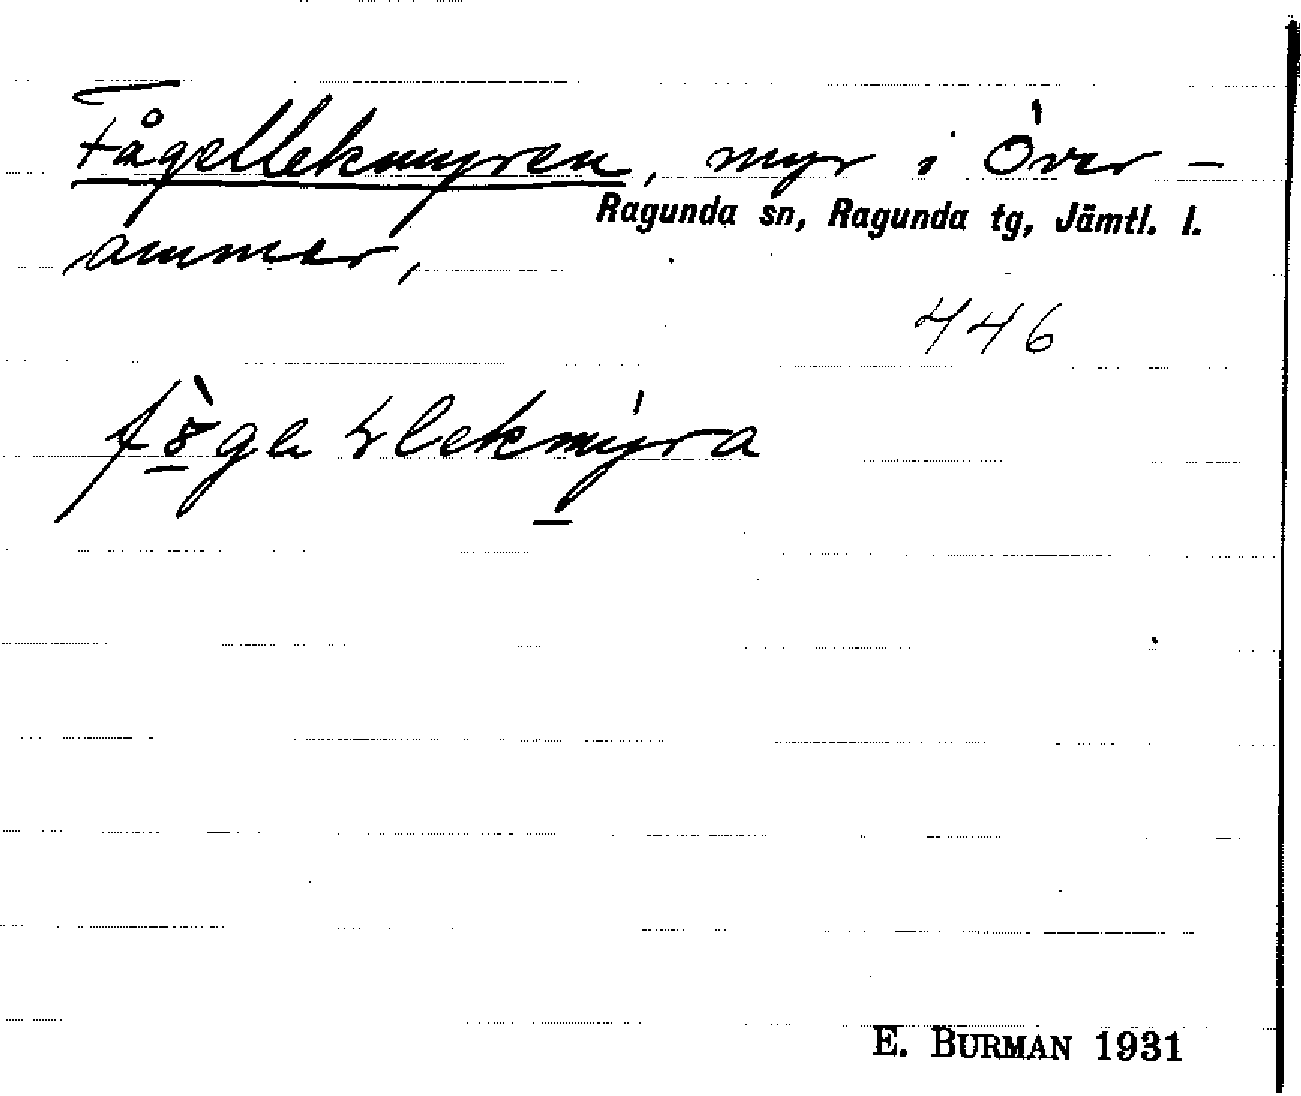 Fågellekmyren, myr i Över-
Ragunda sn, Ragunda tg, Jämtl. l.
ammer,
446
E. BURMAN 1931